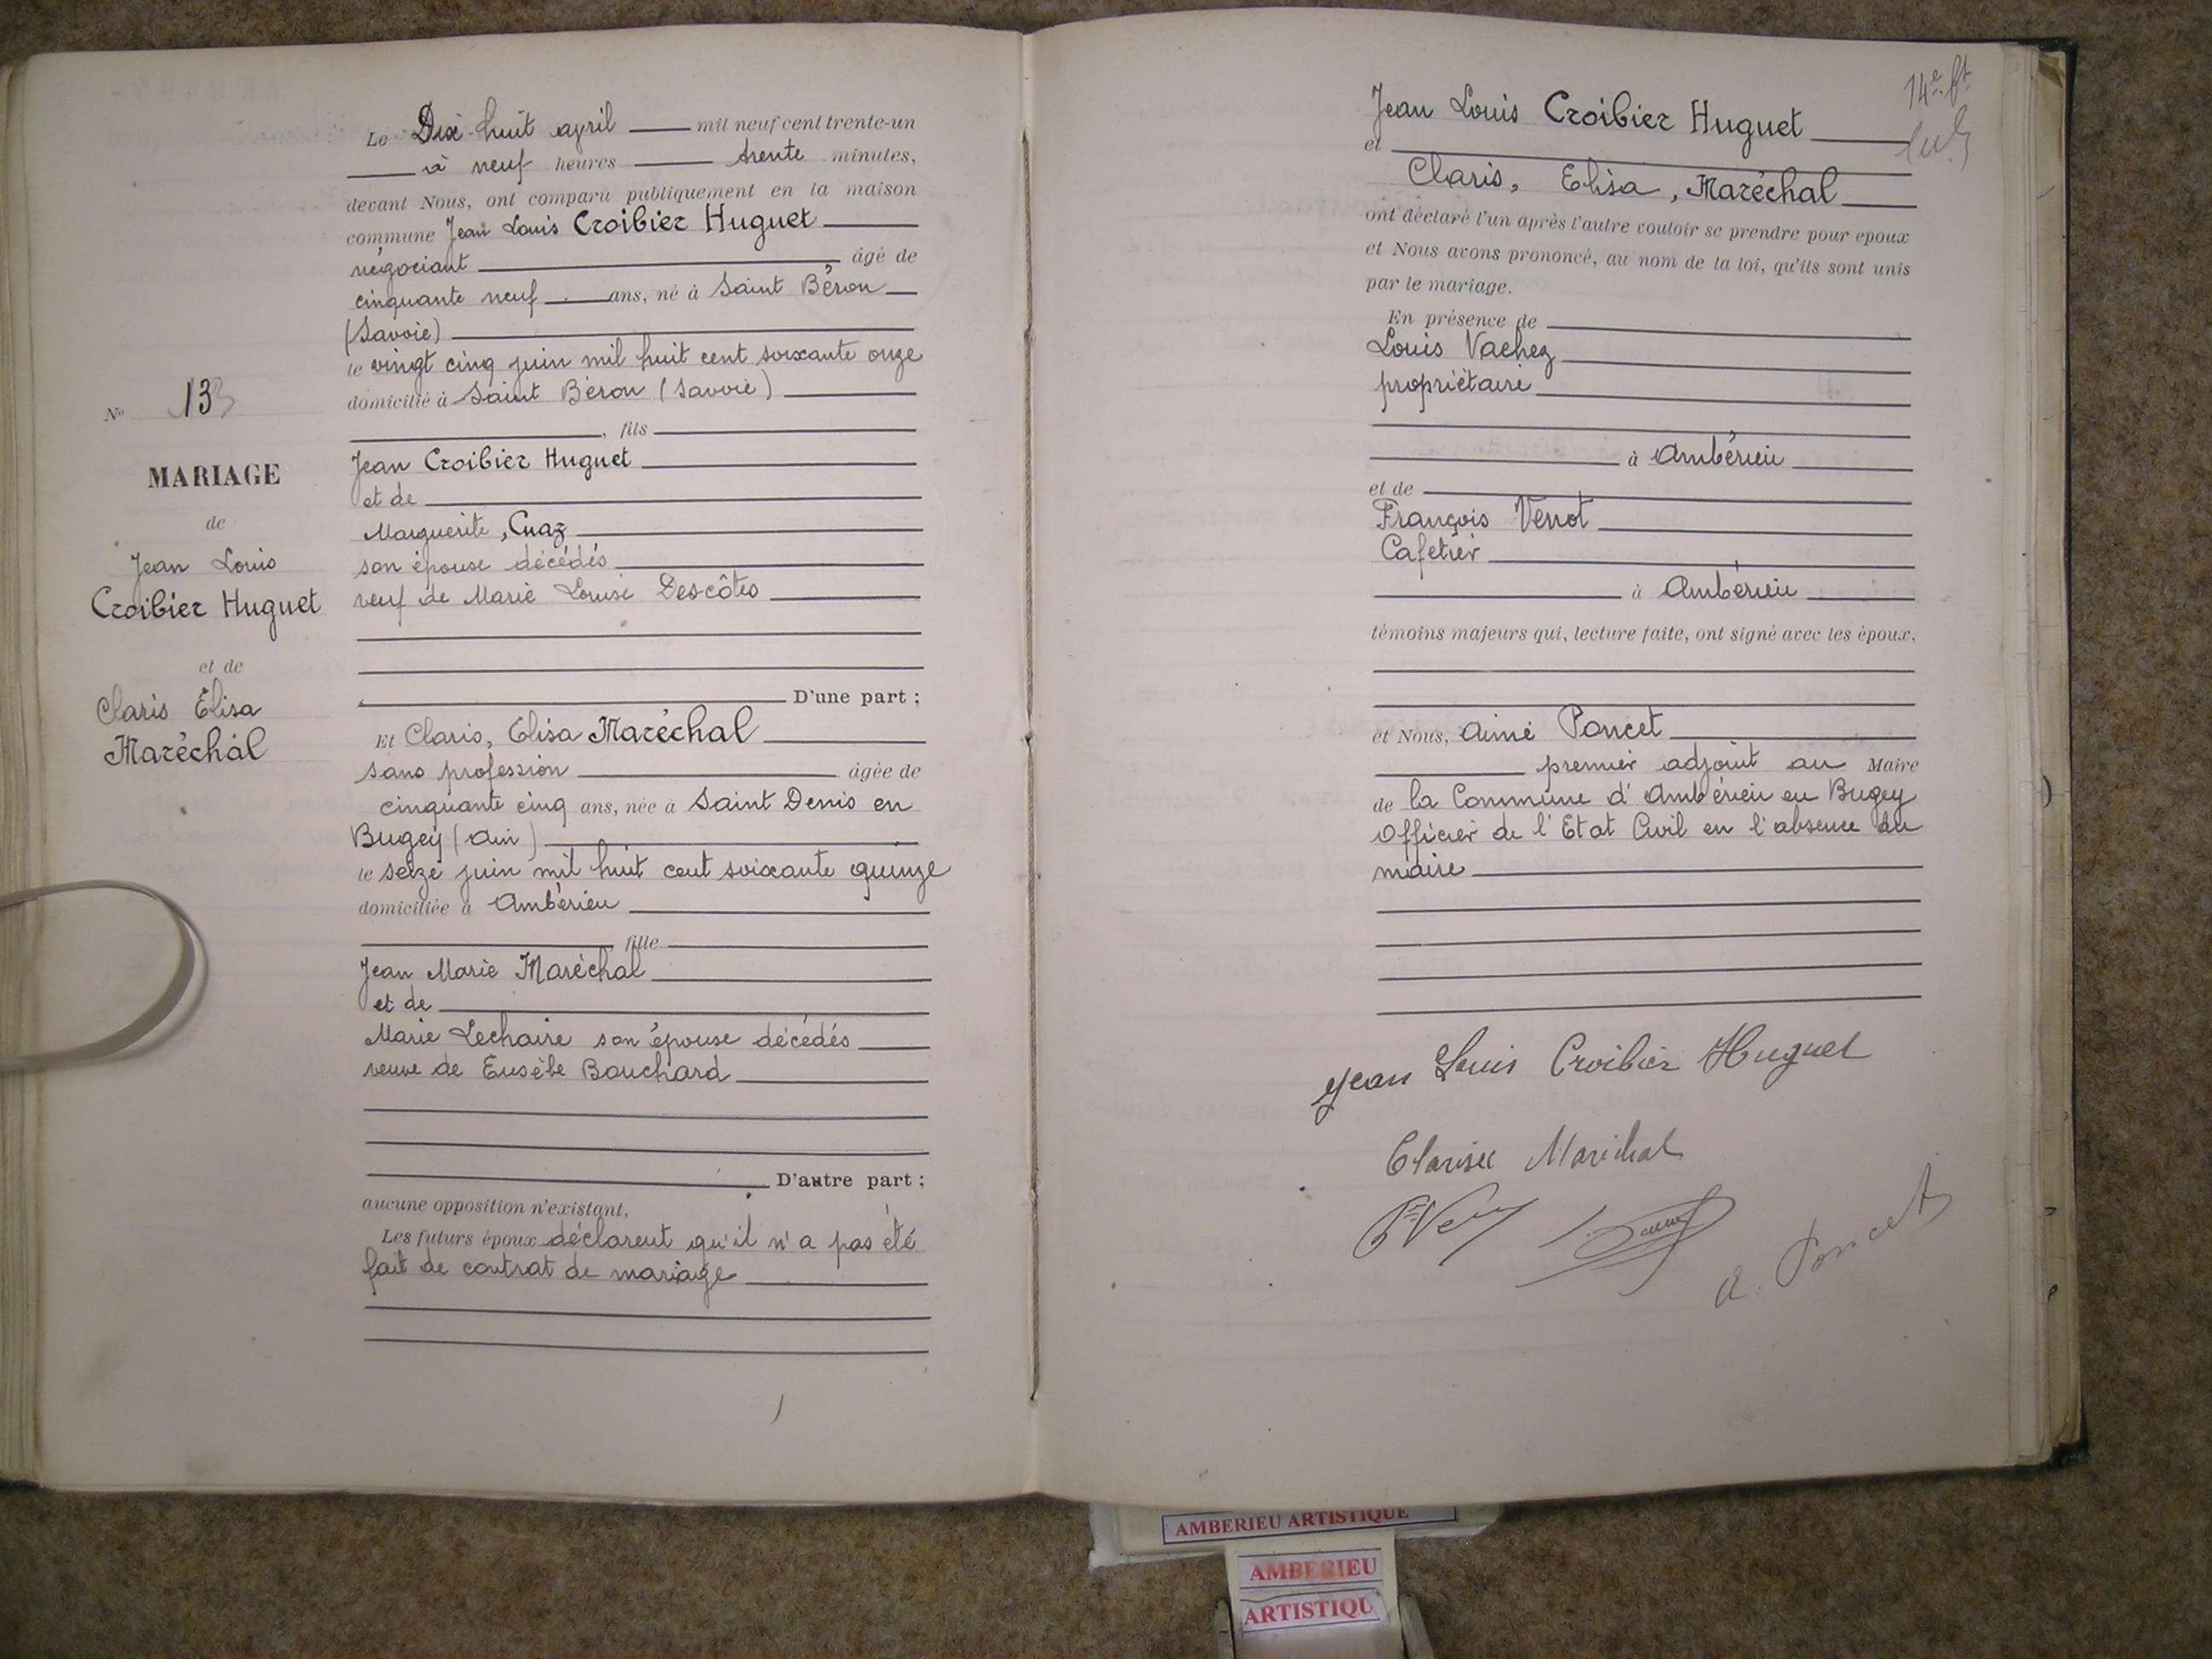 N° 13
MARIAGE
de
Jean Louis
Croibier Huguet
et de
Claris Elisa
Maréchal
Le Dix huit april mil neuf cent trente-un
à neuf heures trente minutes,
devant Nous, ont comparu publiquement en la maison
commune Jean Louis Croibier Huguet
négociant âgé de
cinquante neuf ans, né à Saint Béron
(Savoie)
le vingt cinq juin mil huit cent soixante onze
domicilié à Saint Béron (Savoie)
, fils
Jean Croibier Huguet
et de
Marguerite, Cuaz
son épouse décédés
veuf de Marie Louise Descôtes
D'une part ;
Et Claris, Elisa Maréchal
sans profession âgée de
cinquante cinq ans, née à Saint Denis en
Bugey (Ain)
le seize juin mil huit cent soixante quinze
domiciliée à Ambérieu
, fille
Jean Marie Maréchal
et de
Marie Lechaire son épouse décédés
veuve de Eusèbe Bouchard
D'autre part ;
aucune opposition n'existant,
Les futurs époux déclarent qu'il n'a pas été
fait de contrat de mariage
14e
Jean Louis Croibier Huguet
et
Claris, Elisa, Maréchal
ont déclaré l'un après l'autre vouloir se prendre pour epoux
et Nous avons prononcé, au nom de la loi, qu'ils sont unis
par le mariage.
En présence de
Louis Vachez
propriétaire
à Ambérieu
et de
François Verrot
Cafetier
à Ambérieu
témoins majeurs qui, lecture faite, ont signé avec les époux,
et Nous, Aimé Poncet
premier adjoint au Maire
de la Commune d'Ambérieu en Bugey
Officier de l'Etat Civil en l'absence du
maire
Jean Louis Croibier Huguet
Clarisse Maréchal
A. Poncet
AMBERIEU ARTISTIQUE
AMBERIEU
ARTISTIQU